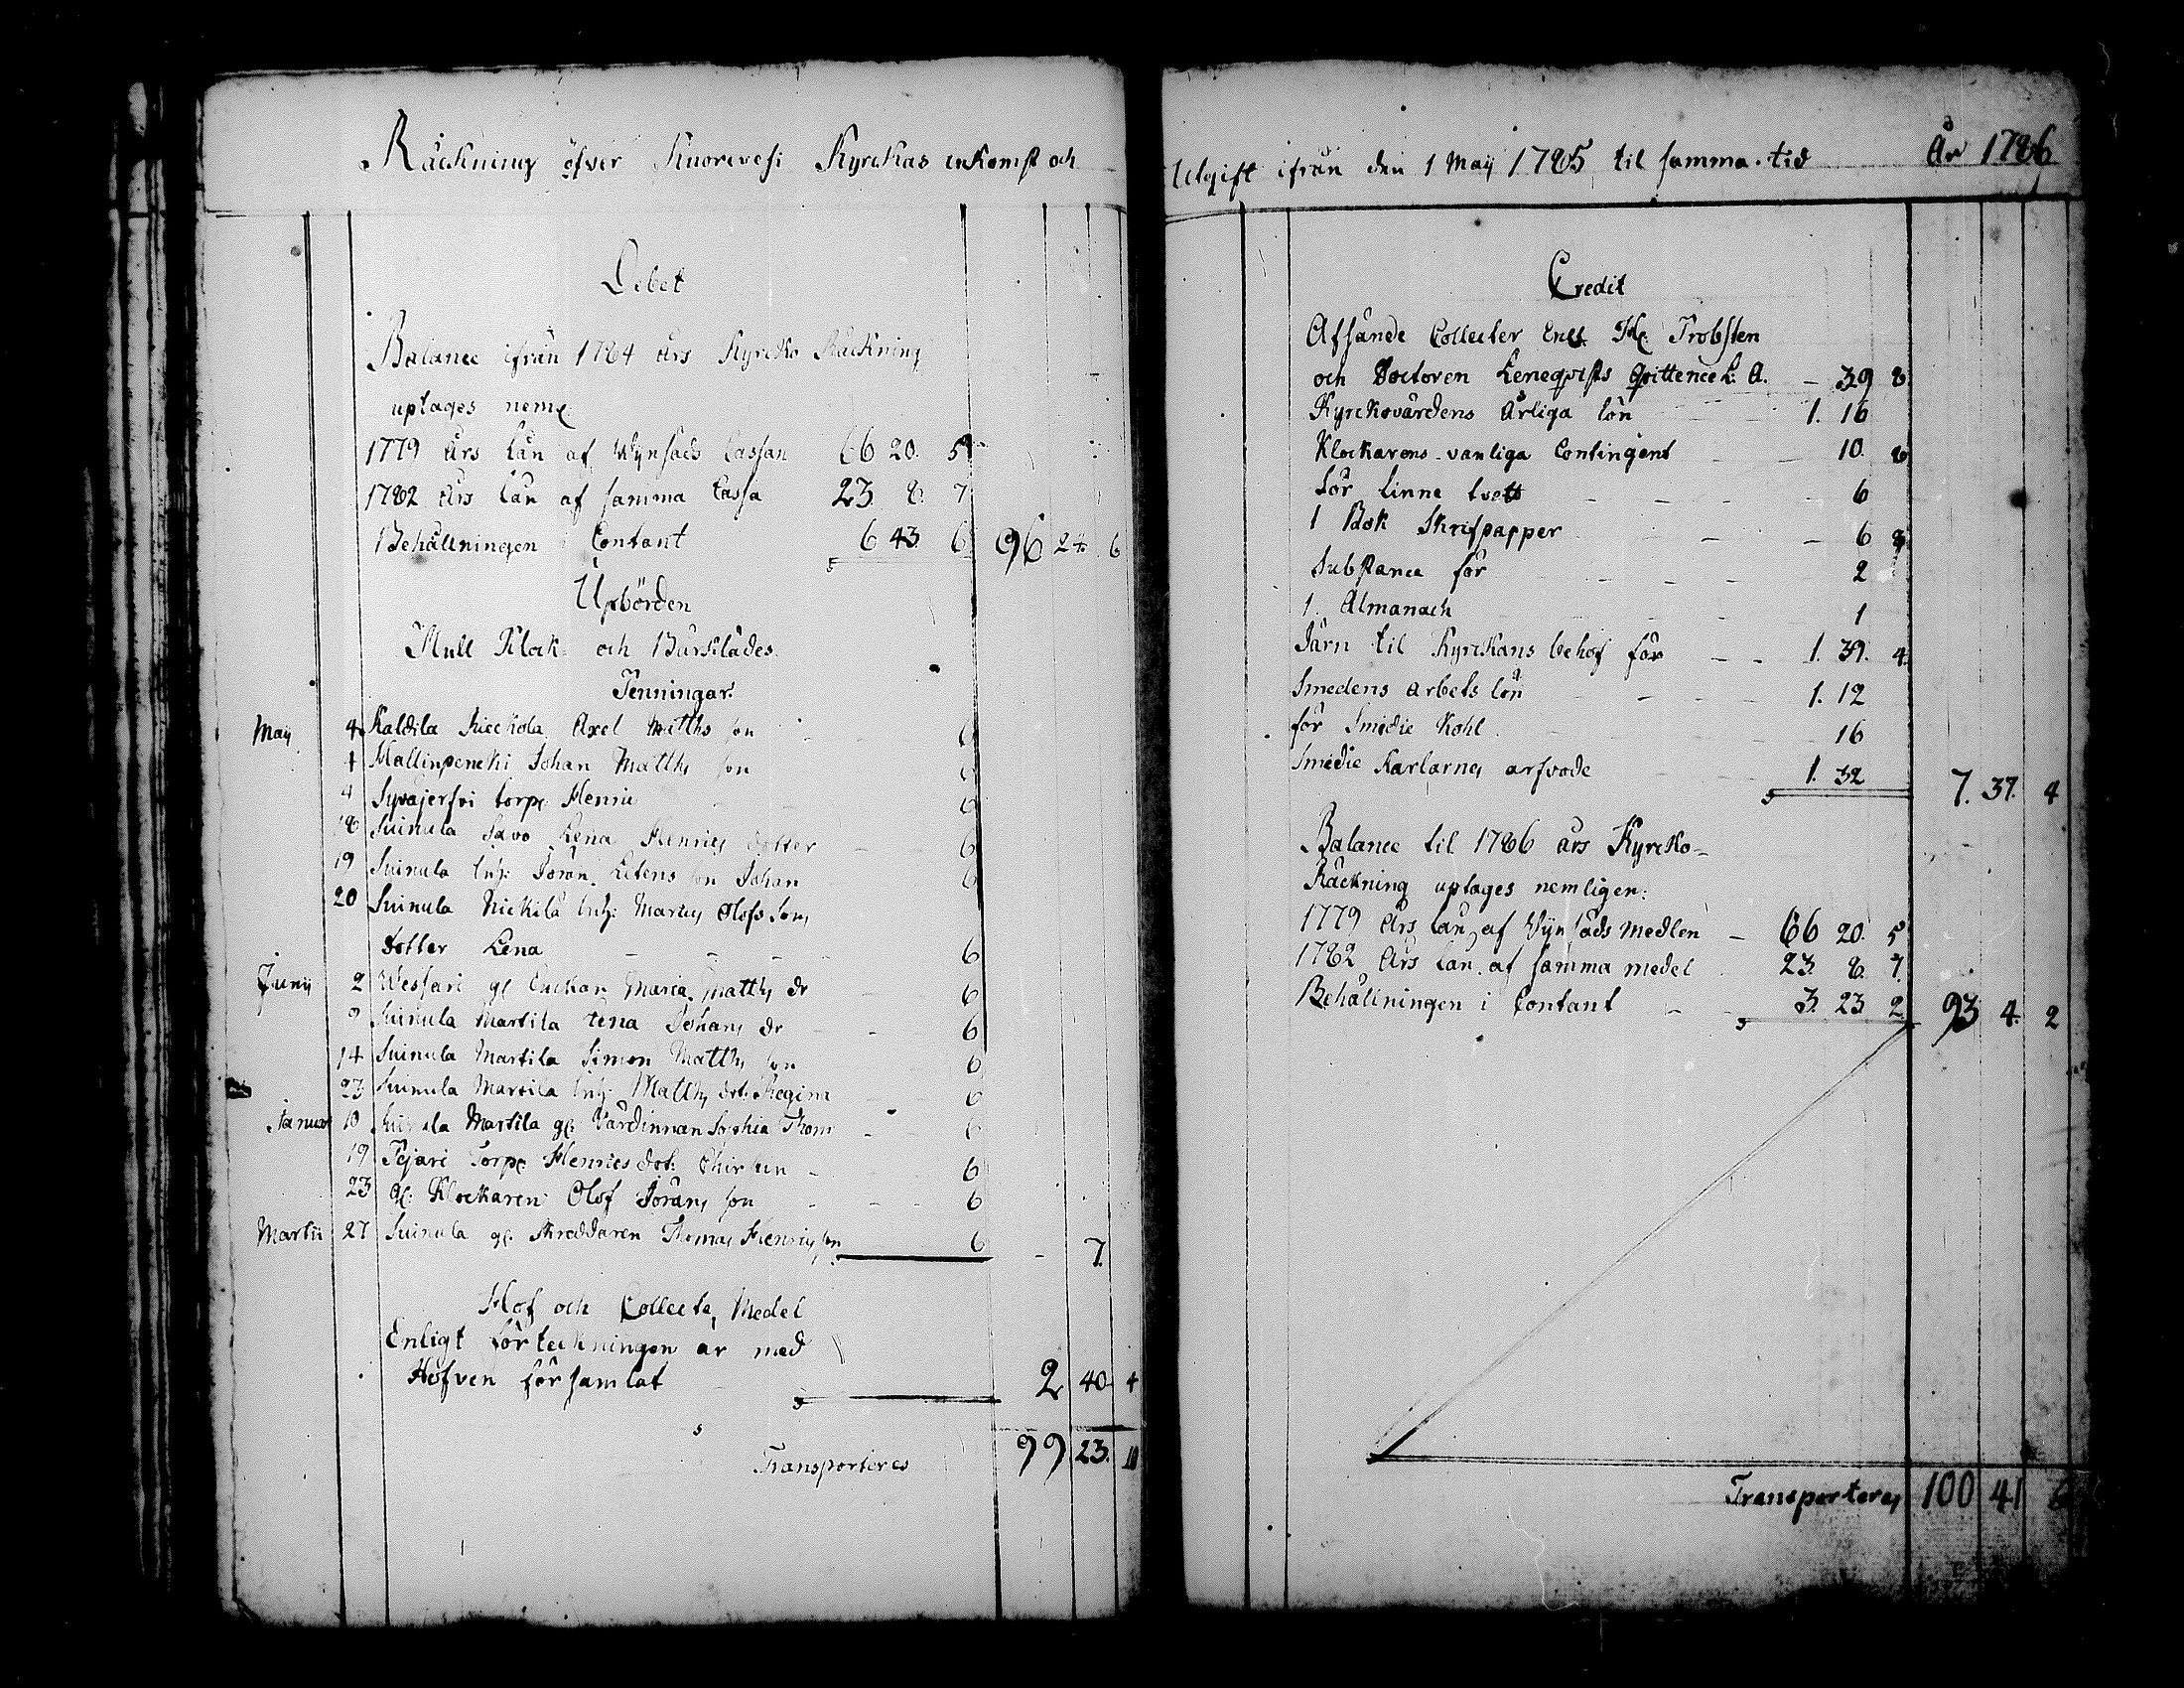 Räckning öfver Kuorevesi Kyrckas inkomst och
Debet
Balance ifrån 1784 års Kyrcko Räckning
uptages neml.
1779 års lån af Wijnsäds Cassan 66 20. 5
1782 års lån af samma Cassa 23. 8. 7
Behållningen i Contant 6 43. 6 96 24. 6
Upbörden
Mull Klock- och Bårklädes
Penningar.
Maij 4 Kaldila Axel Matths son 6
4 Hallinpencki Johan Matths son 6
4 torp. Henric 6
18 Suinula Savo Lena Henrics dotter 6
19 Suinula Inh: Jöran son Johan 6
20 Suinula Nickilä Inh: Olofs sons
dotter Lena 6
Junij 2 Wessari gl Enckan Maria Matths dr 6
9 Suinula Martila Lena Johans dr 6
14 Suinula Martila Simon Matths son 6
23 Suinula Martila Inh: Matths dot: Regina 6
Januar 10 Suinula Martila gl: Värdinnan Sophia Thom 6
19 Torp. Henrics dot: Chirstin 6
23 gl: Klockaren Olof Jörans son 6
Martii 27 Suinula gl: Skreddaren Thomas Henrics son 6 - 7.
Hof och Collects Medel
Enligt förteckningen är med
Hofven församlat 2 40 4
Transporteres 99 23. 10
Utgift ifrån den 1 Maij 1785 til samma tid År 1786
Credit
Afsände Collecter Enl. H. Probsten
och Doctoren Leneqvists Qvittence L: A. - 39 8
Kyrckovärdens Årliga lön 1. 16
Klockarens vanliga Contingent 10. 8
för linne tvätt 6
1 Bok Skrifpapper 6 8
Substance för 2
1. Almanach 1
Järn til Kyrckans behof för 1. 39. 4
Smedens arbets lön 1. 12
för Smidie Kohl 16
Smidie Karlarnes arfvode 1. 32 7. 37. 4
Balance til 1786 års Kyrcko-
Räckning uptages nemligen:
1779 Års lån af Wijnsäds medlen - 66 20. 5
1782 Års lån af samma medel 23. 8. 7
Behållningen i Contant 3. 23 2 93 4. 2
Transporteres 100 41 6